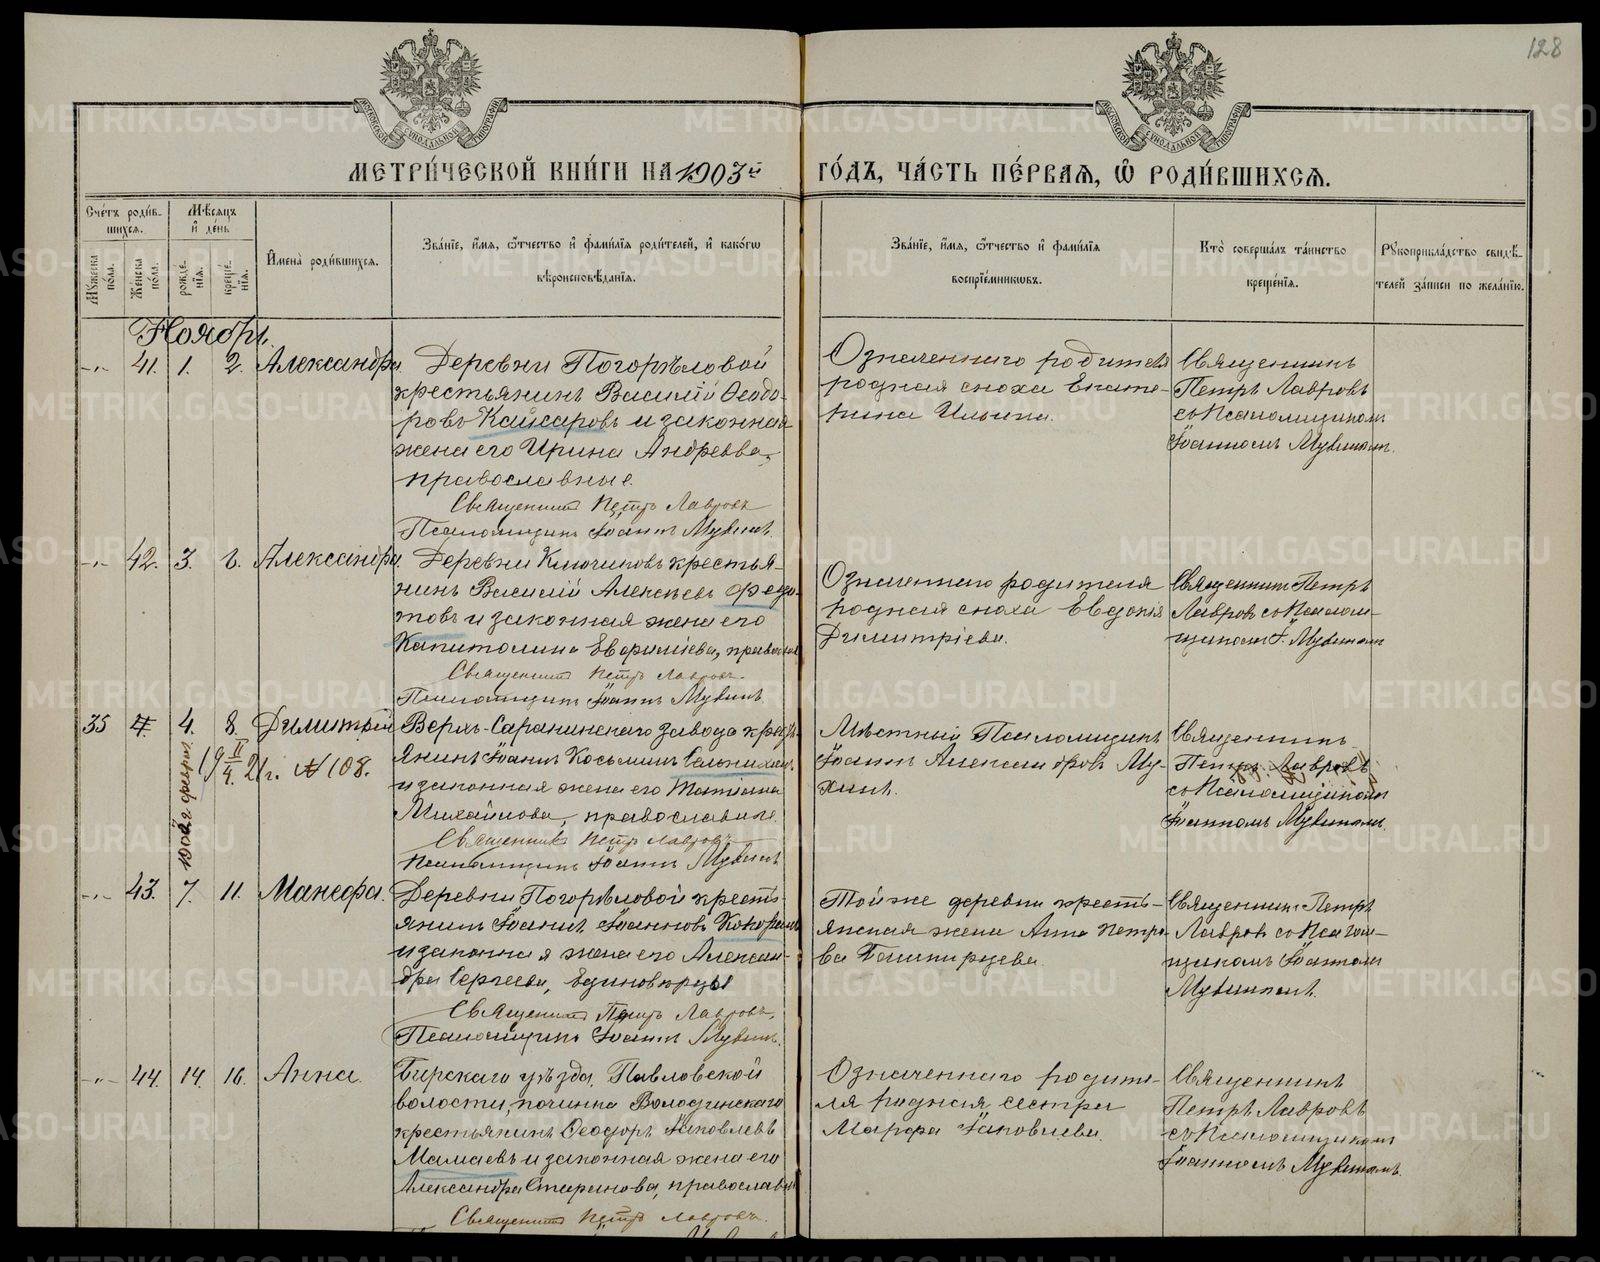 128
МЕТРИ́ЧЕСКОЙ КНИ́ГИ НА 1903й ГО́ДЪ, ЧА́СТЬ ПЕ́РВАѦ, Ѽ РОДИ́ВШИХСѦ.
Сче́тъ роди́в-
шихсѧ.
Мꙋ́жеска по́ла.
Же́нска по́ла.
Мѣ́сѧцъ
и҆ де́нь
рожде́-
нїѧ.
креще́-
нїѧ.
И҆мена̀ роди́вшихсѧ.
Зва́нїе, и҆́мѧ, ѻ҆́тчество и҆ фами́лїѧ роди́телей, и҆ како́гѡ
вѣроисповѣ́данїѧ.
Зва́нїе, и҆́мѧ, ѻ҆́тчество и҆ фами́лїѧ
воспрїе́мникѡвъ.
Кто̀ соверша́лъ та́инство
креще́нїѧ.
Рꙋкоприкла́дство свидѣ́-
телей за́писи по жела́нїю.
Ноябрь.
-"- 41. 1. 2. Александра.
Деревни Погорѣловой
крестьянинъ Василій Ѳеодо-
ровъ Кайсаровъ и законная
жена его Ирина Андреева,
православные.
Священникъ Петръ Лавровъ
Псаломщикъ Іоаннъ Мухинъ.
Означеннаго родителя
родная сноха Екате-
рина Ильина.
Священникъ
Петръ Лавровъ
съ Псаломщикомъ
Іоанномъ Мухинымъ.
-"- 42. 3. Александра.
Деревни Ключиковъ крестья-
нинъ Василій Алексѣевъ Федо-
товъ и законная жена его
Капитолина Евфиміева,
Священникъ Петръ Лавровъ.
Псаломщикъ Іоаннъ Мухинъ.
Означеннаго родителя
родная сноха Евдокія
Димитріева.
Священникъ Петръ
Лавровъ съ Псалом-
щикомъ І. Мухинымъ
35 4. 8. Димитрій
21г. № 108.
Верхъ-Саранинскаго завода крестъ-
янинъ Іоаннъ Косьминъ
и законная жена его Татіана
Михайлова, православные.
Священникъ Петръ Лавровъ
Псаломщикъ Іоаннъ Мухинъ
Мѣстный Псаломщикъ
Іоаннъ Александровъ Му-
хинъ.
Священникъ
Петръ Лавровъ
съ Псаломщикомъ
Іоанномъ Мухинымъ.
-"- 43. 7. 11. Манефа.
Деревни Погорѣловой кресть-
янинъ Іоаннъ Іоанновъ
и законная жена его Алексан-
дра Сергеева, Единовѣрцы
Священникъ Петръ Лавровъ.
Псаломщикъ Іоаннъ Мухинъ.
Той же деревни кресть-
янская жена Анна Петро-
ва Башкирцева.
Священникъ Петръ
Лавровъ съ Псалом-
щикомъ Іоанномъ
Мухинымъ.
-"- 44. 14. 16. Анна.
Бирскаго уѣзда, Павловской
волости, починка Володинскаго
крестьянинъ Ѳеодоръ Іаковлевъ
Мамаевъ и законная жена его
Александра Стафанова,
Священникъ Петръ Лавровъ.
Означеннаго родите-
ля родная сестра
Марфа Іаковлева.
Священникъ
Петръ Лавровъ
съ Псаломщикомъ
Іоанномъ Мухинымъ.
METRIKI.GASO-URAL.RU